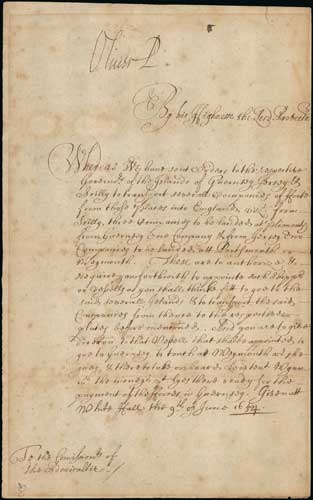 Oliver P.
By his Highness the Lord Protector
Whereas Wee have sent Orders to the respective
Governors of the Islands of Guernsey Jersey &
Scilly to transport several Companyes of foote
from those places into England, viz. from
Scilly, three Companyes to be landed at Plymouth
from Guernsey One Company & from Jersey two
Companyes to be landed att Portsmouth or
Weymouth. These are to authorise &
require you forthwith to appointe such shipps
or vessells as you shall thinke fitt to goe to the
said several Islands & to transport the said
Companyes from thence to the respective
places before mentioned. And you are to give
direction, that Vessell that shalbe appointed, to
goe to Guernsey to touch at Weymouth as she
goes, & there to take on board
the moneys lyes there ready for the
payment of the forces in Guernsey. Given att
White Hall the 9th of June 1654.
To the Comissionrs of
the Admiraltie